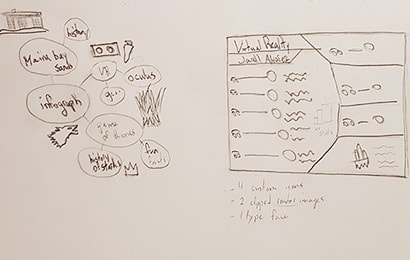 history
Maina bay
Sands
VR
oculus
infograph
game
of thrones
history
of starks
fun
facts
Virtual Reality
- 4 custom icons
- 2 clipped images
- 1 type face